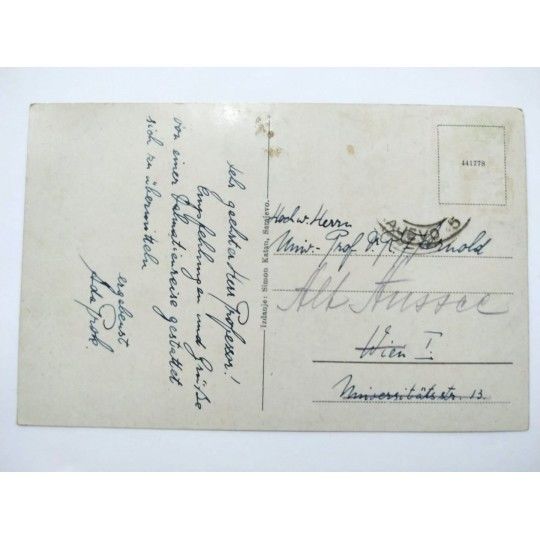 Sehr geehrter Herr Professor!
Empfehlungen und Grüße
von einer Dalmatienreise gestattet
sich zu übermitteln
ergebenst
Ada Prok.
Izdanje: Simon Katan, Sarajevo.
441778
AJEVO 5
Hochw. Herrn
Univ.- Prof. Dr.
Alt Aussee
Wien I.
Universitätsstr. 13.